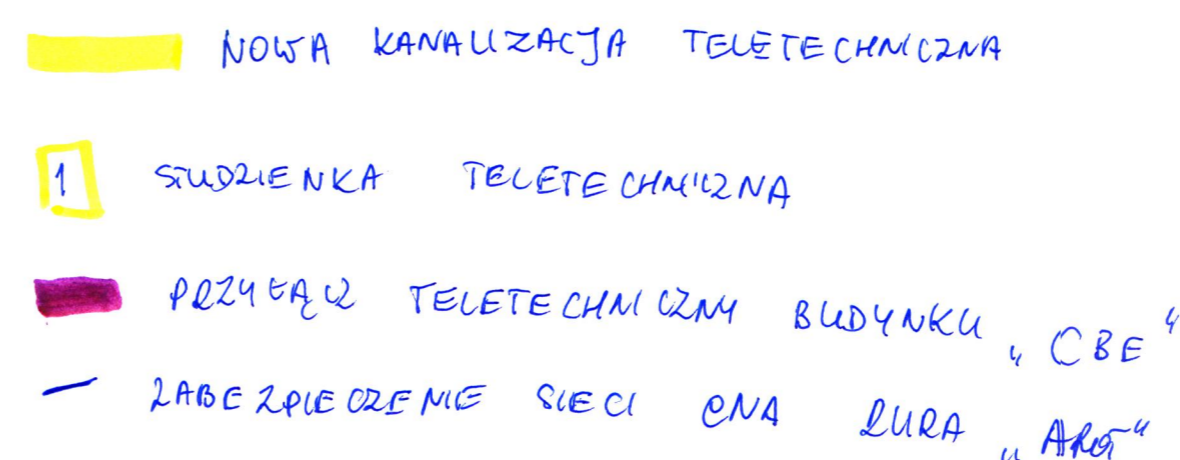 NOWA KANALIZACJA TELETECHNICZNA
1 STUDZIENKA TELETECHNICZNA
PRZYŁĄCZ TELETECHNICZNY BUDYNKU „CBE"
ZABEZPIECZENIE SIECI ENA RURA „AROT"